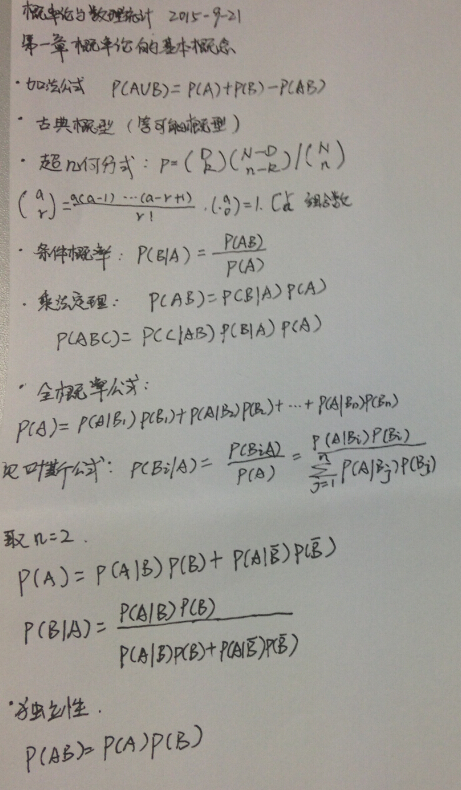 概率论与数理统计 2015-9-21
第一章 概率论的基本概念
·加法公式 P(A∪B)=P(A)+P(B)-P(AB)
·古典概型(等可能概型)
·超几何分式: P=(D k)(N-D n-k)/(N n)
(a r)=a(a-1)…(a-r+1)/r! . (a 0)=1. C_a^r 组合数
·条件概率: P(B|A)=P(AB)/P(A)
·乘法定理: P(AB)=P(B|A)P(A)
P(ABC)=P(C|AB)P(B|A)P(A)
·全概率公式:
P(A)=P(A|B₁)P(B₁)+P(A|B₂)P(B₂)+…+P(A|Bn)P(Bn)
贝叶斯公式: P(Bi|A)=P(BiA)/P(A)=P(A|Bi)P(Bi)/∑_{j=1}^{n}P(A|Bj)P(Bj)
取n=2.
P(A)=P(A|B)P(B)+P(A|B̄)P(B̄)
P(B|A)=P(A|B)P(B)/P(A|B)P(B)+P(A|B̄)P(B̄)
·独立性.
P(AB)=P(A)P(B)